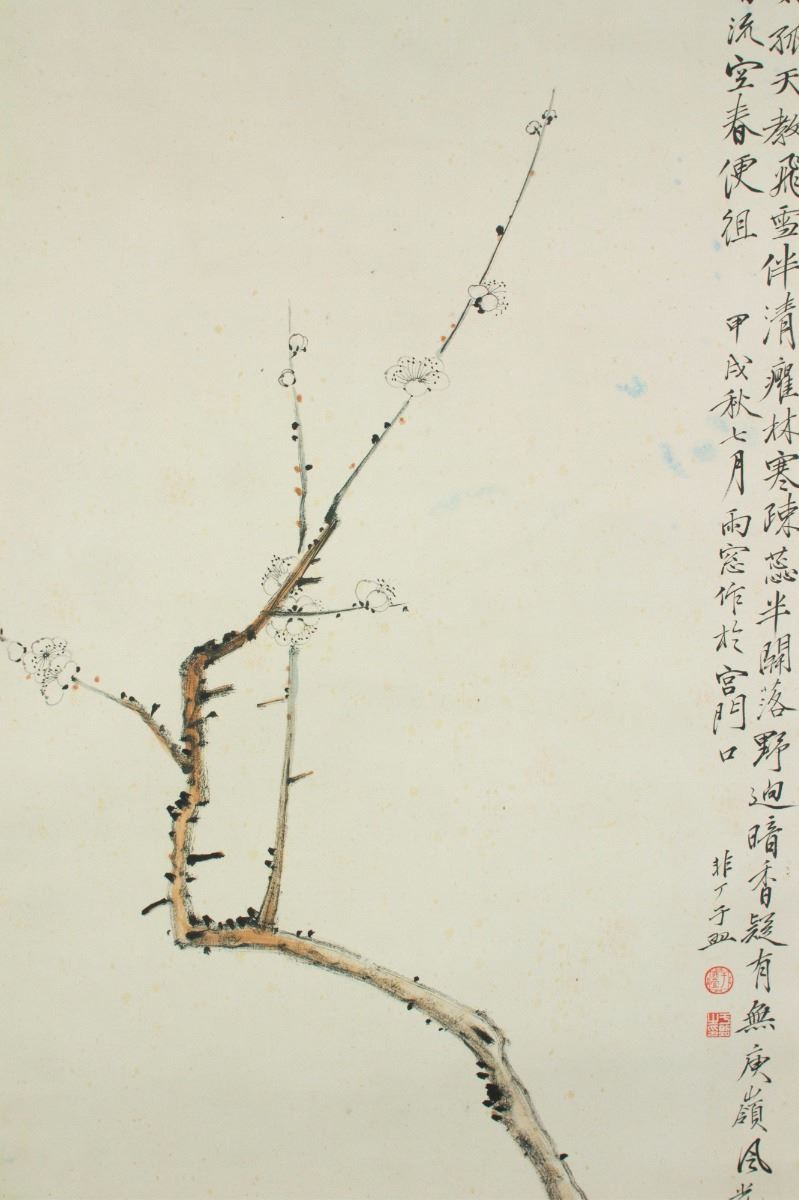 孤天教飛雪伴清癯林寒疎蕊半開落野迥暗香疑有無庾嶺風光
流空春便徂
甲戌秋七月雨窓作於宮門口
非丁于照